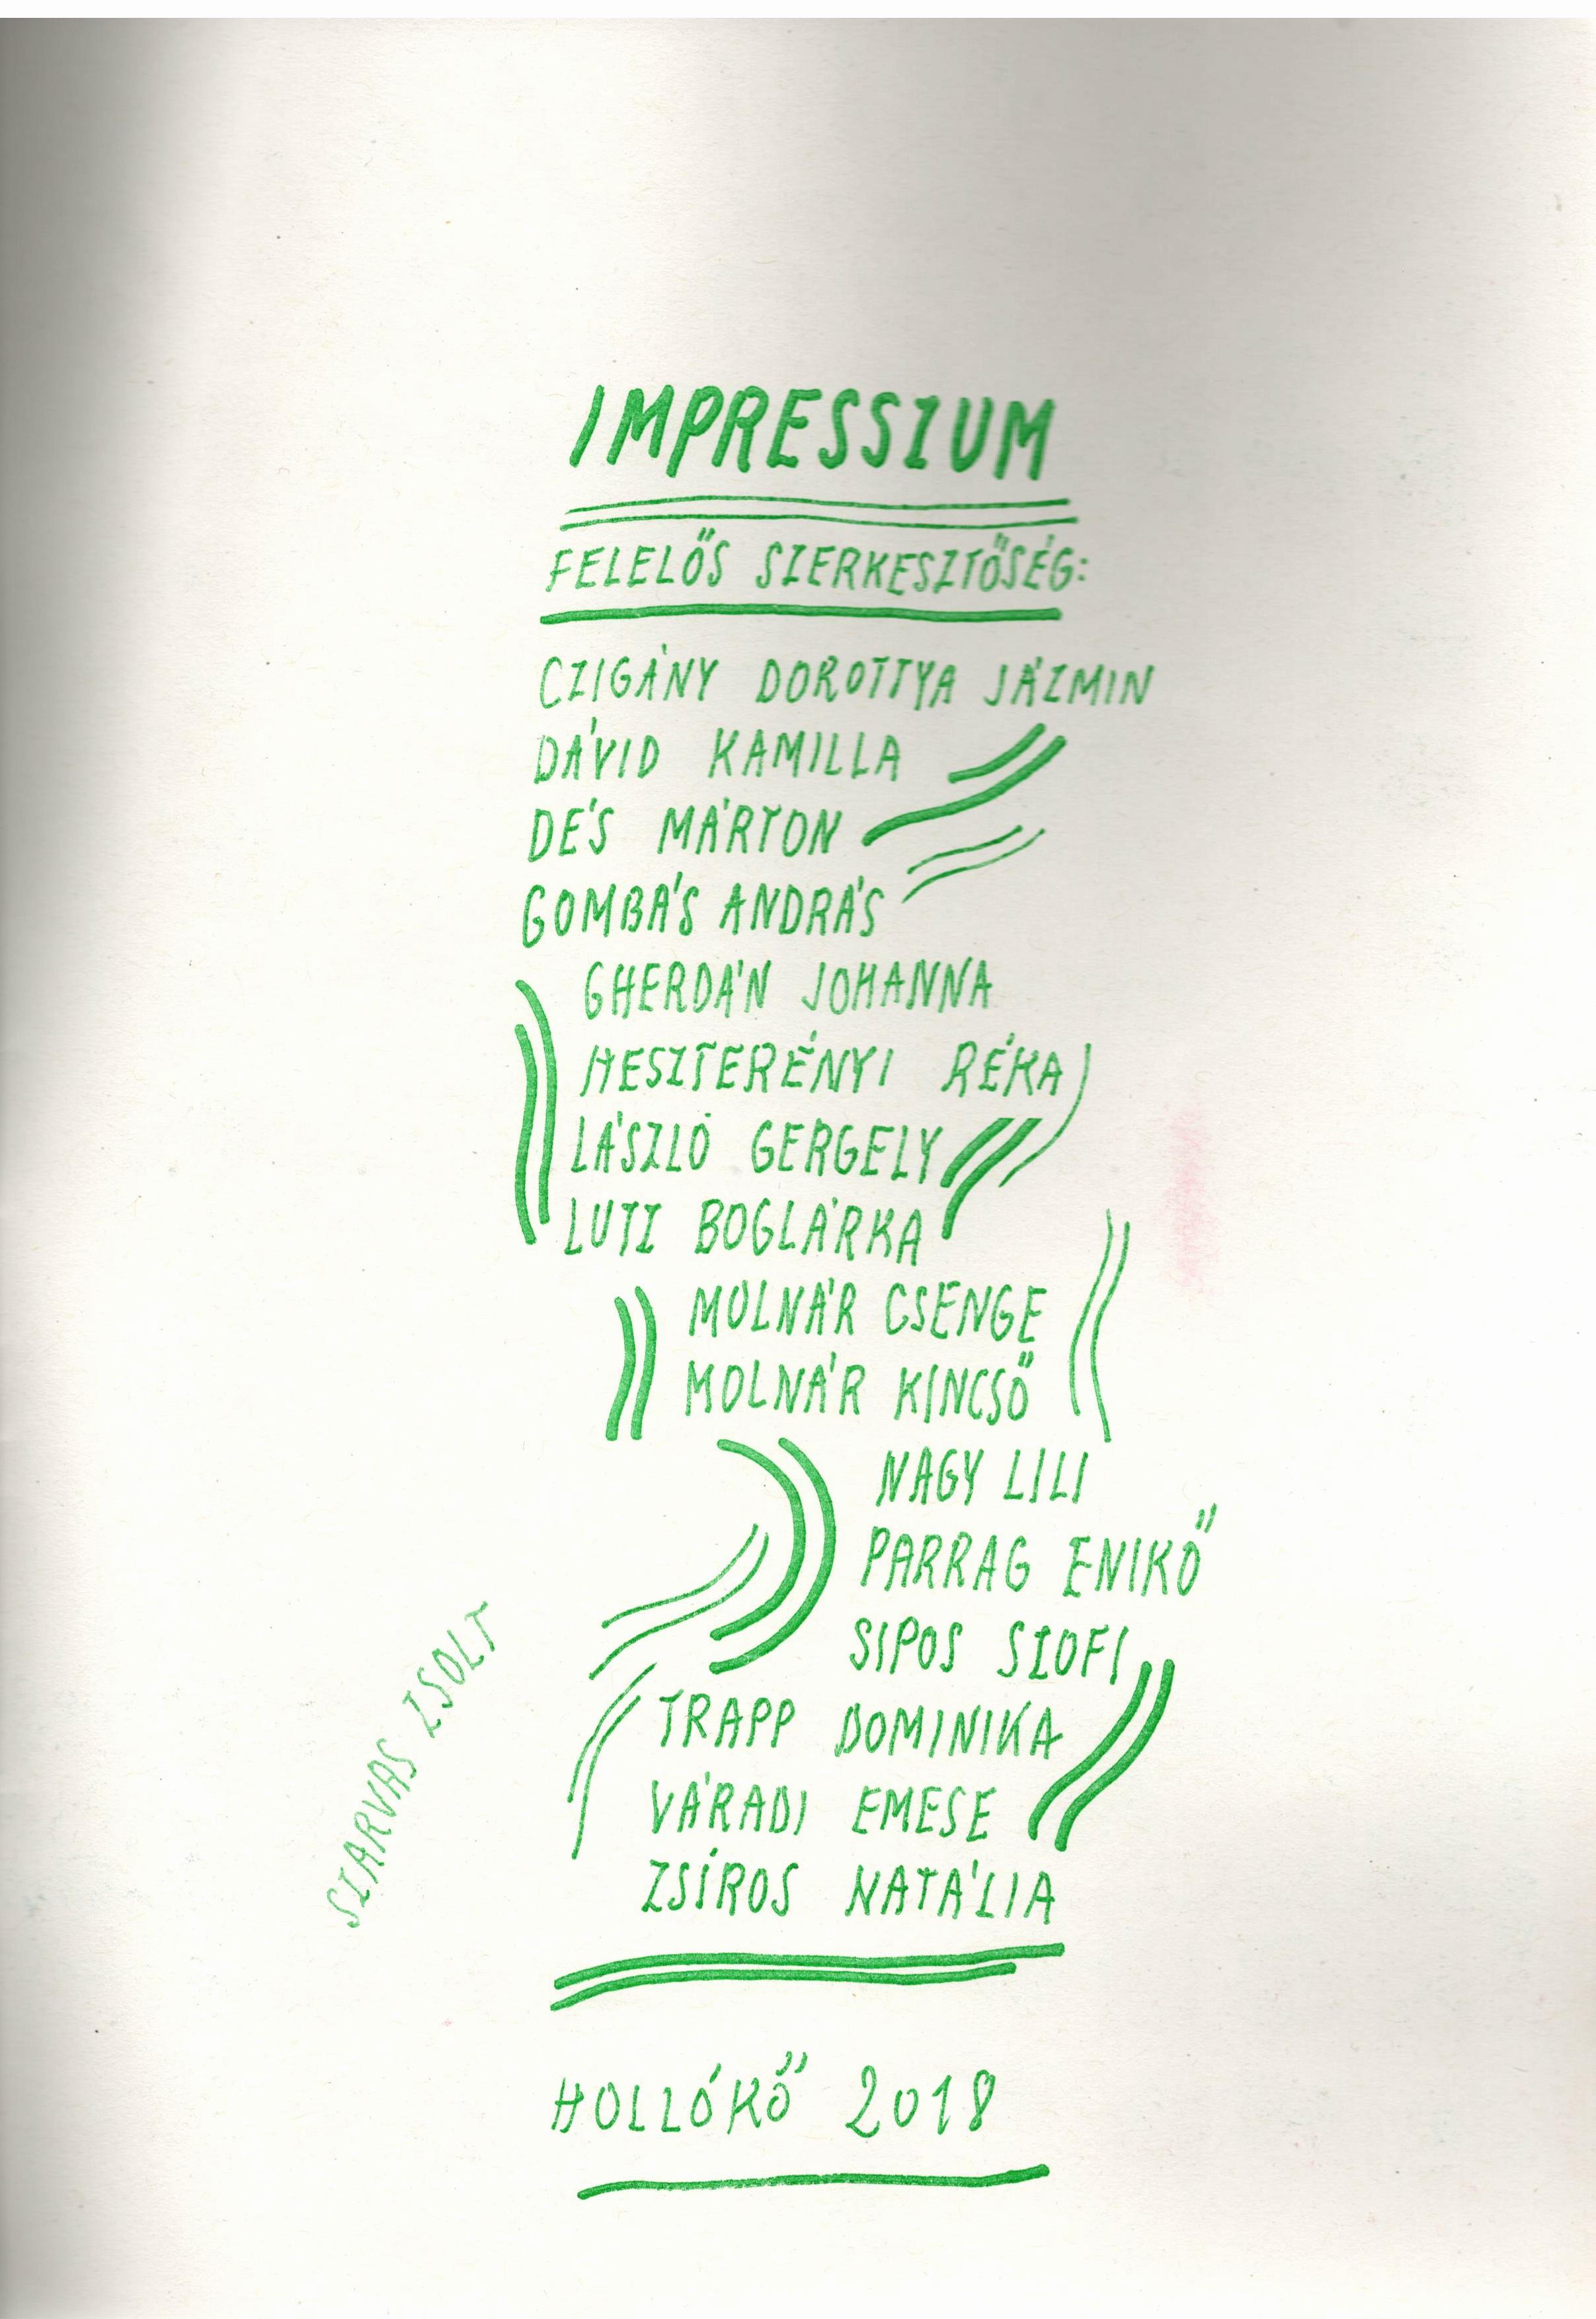 IMPRESSZUM
FELELŐS SZERKESZTŐSÉG:
CZIGÁNY DOROTTYA JÁZMIN
DÁVID KAMILLA
DÉS MÁRTON
GOMBÁS ANDRÁS
GHERDÁN JOHANNA
HESZTERÉNYI RÉKA
LÁSZLÓ GERGELY
LUTZ BOGLÁRKA
MOLNÁR CSENGE
MOLNÁR KINCSŐ
NAGY LILI
PARRAG ENIKŐ
SIPOS SZOFI
TRAPP DOMINIKA
VÁRADI EMESE
ZSÍROS NATÁLIA
SZARVAS ZSOLT
HOLLÓKŐ 2018